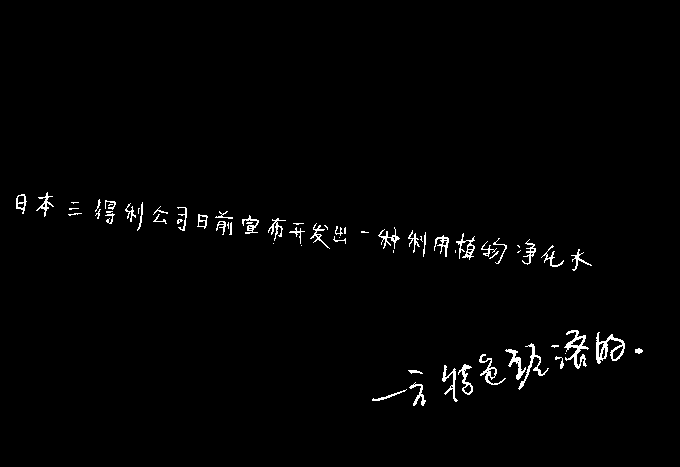 日本三得利公司日前宣布开发出一种利用植物净化水
一方特色班落的.